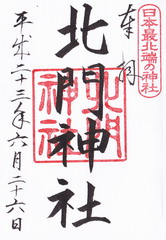 日本最北端の神社
奉拝
北門神社
北門神社
平成二十三年六月二十六日